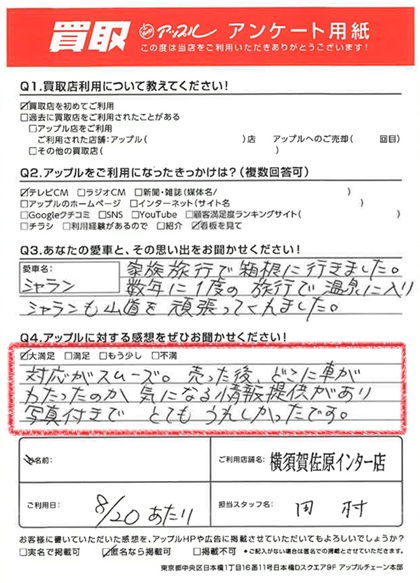 買取 アップル アンケート用紙
この度は当店をご利用いただきありがとうございます!
Q1.買取店利用について教えてください!
☑買取店を初めてご利用
□過去に買取店をご利用されたことがある
□アップル店をご利用
ご利用された店舗:アップル( )店 アップルへのご売却( 回目)
□その他の買取店( )
Q2.アップルをご利用になったきっかけは?(複数回答可)
☑テレビCM □ラジオCM □新聞・雑誌(媒体名/ )
□アップルのホームページ □インターネット(サイト名 )
□Googleクチコミ □SNS □YouTube □顧客満足度ランキングサイト( )
□チラシ □利用経験があるので □紹介 ☑看板を見て
Q3.あなたの愛車と、その思い出をお聞かせください!
愛車名:
シャラン
家族旅行で箱根に行きました。
数年に1度の旅行で温泉に入り
シャランも山道を頑張ってくれました。
Q4.アップルに対する感想をぜひお聞かせください!
☑大満足 □満足 □もう少し □不満
対応がスムーズ。売った後、どこに車が
わたったのか気になる情報提供があり
写真付きで とてもうれしかったです。
お名前:
ご利用店舗名: 横須賀佐原インター店
ご利用日: 8/20あたり
担当スタッフ名: 田村
お客様に書いていただいた感想を、アップルHPや広告に掲載させていただいてもよろしいでしょうか?
□実名で掲載可 ☑匿名なら掲載可 □掲載不可 *ご記入がない場合は匿名での掲載とさせていただきます。
東京都中央区日本橋1丁目16番11号日本橋Dスクエア9F アップルチェーン本部